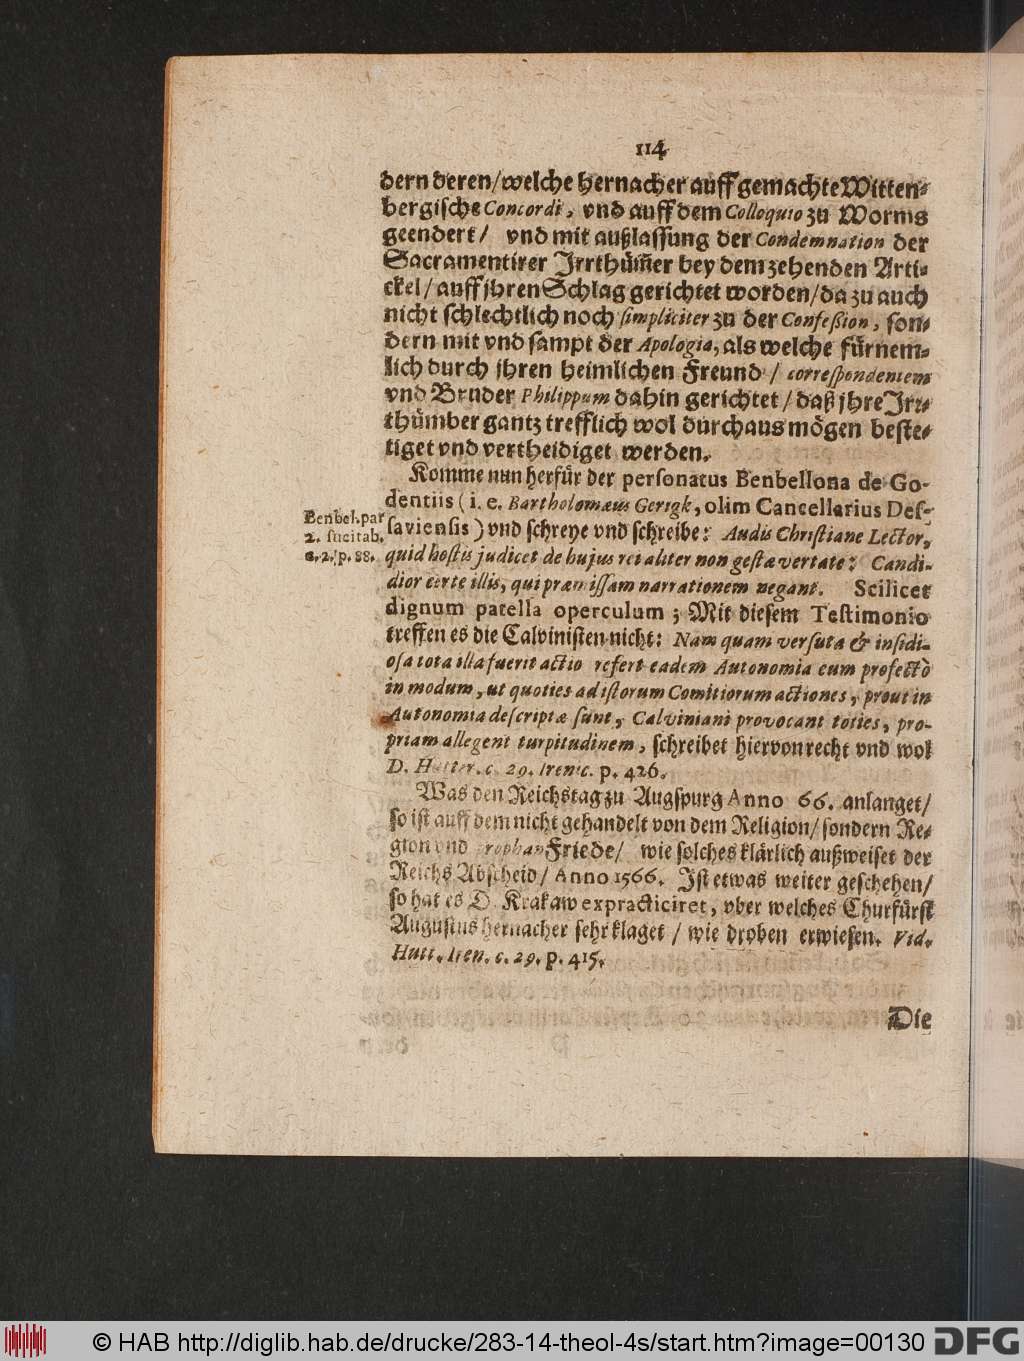 114
dern deren/welche hernacher auff gemachte Witten-
bergische Concordi, vnd auff dem Colloquio zu Worms
geendert/ vnd mit außlassung der Condemnation der
Sacramentirer Irrthům̃er bey dem zehenden Arti-
ckel/auff jhren Schlag gerichtet worden/da zu auch
nicht schlechtlich noch simpliciter zu der Confeßion, son-
dern mit vnd sampt der Apologia, als welche fürnem-
lich durch jhren heimlichen Freund / correspondentem
vnd Bruder Philippum dahin gerichtet/daß jhre Irr-
thůmber gantz trefflich wol durchaus mögen beste-
tiget vnd vertheidiget werden.
Komme nun herfür der personatus Benbellona de Go-
dentiis (i. e. Bartholomæus Gerigk, olim Cancellarius Des-
saviensis) vnd schreye vnd schreibe: Audis Christiane Lector,
Benbel. par
2. sucitab.
c. 2. p. 88.
quid hostis judicet de hujus rei aliter non gestæ vertate: Candi-
dior certe illis, qui præmissam narrationem negant. Scilicet
dignum patella operculum; Mit diesem Testimonio
treffen es die Calvinisten nicht: Nam quam versuta & insidi-
osa tota illa fuerit actio refert eadem Autonomia eum profectò
in modum, ut quoties ad istorum Comitiorum actiones, prout in
Autonomia descriptæ sunt, Calviniani provocant toties, pro-
priam allegent turpitudinem, schreibet hiervon recht vnd wol
D. Hutter. c. 29. Irenic. p. 426.
Was den Reichstag zu Augspurg Anno 66. anlanget/
so ist auff dem nicht gehandelt von dem Religion/sondern Re-
gion vnd prophan Friede/ wie solches klärlich außweiset der
Reichs Abscheid/ Anno 1566. Ist etwas weiter geschehen/
so hat es D. Krakaw expracticiret, vber welches Churfürst
Augustus hernacher sehr klaget / wie droben erwiesen. Vid.
Hutt. Iren. c. 29. p. 415.
Die
© HAB http://diglib.hab.de/drucke/283-14-theol-4s/start.htm?image=00130 DFG